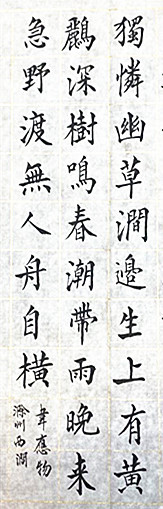 獨憐幽草澗邊生上有黃
鸝深樹鳴春潮帶雨晚来
急野渡無人舟自橫
韋應物
滁州西澗